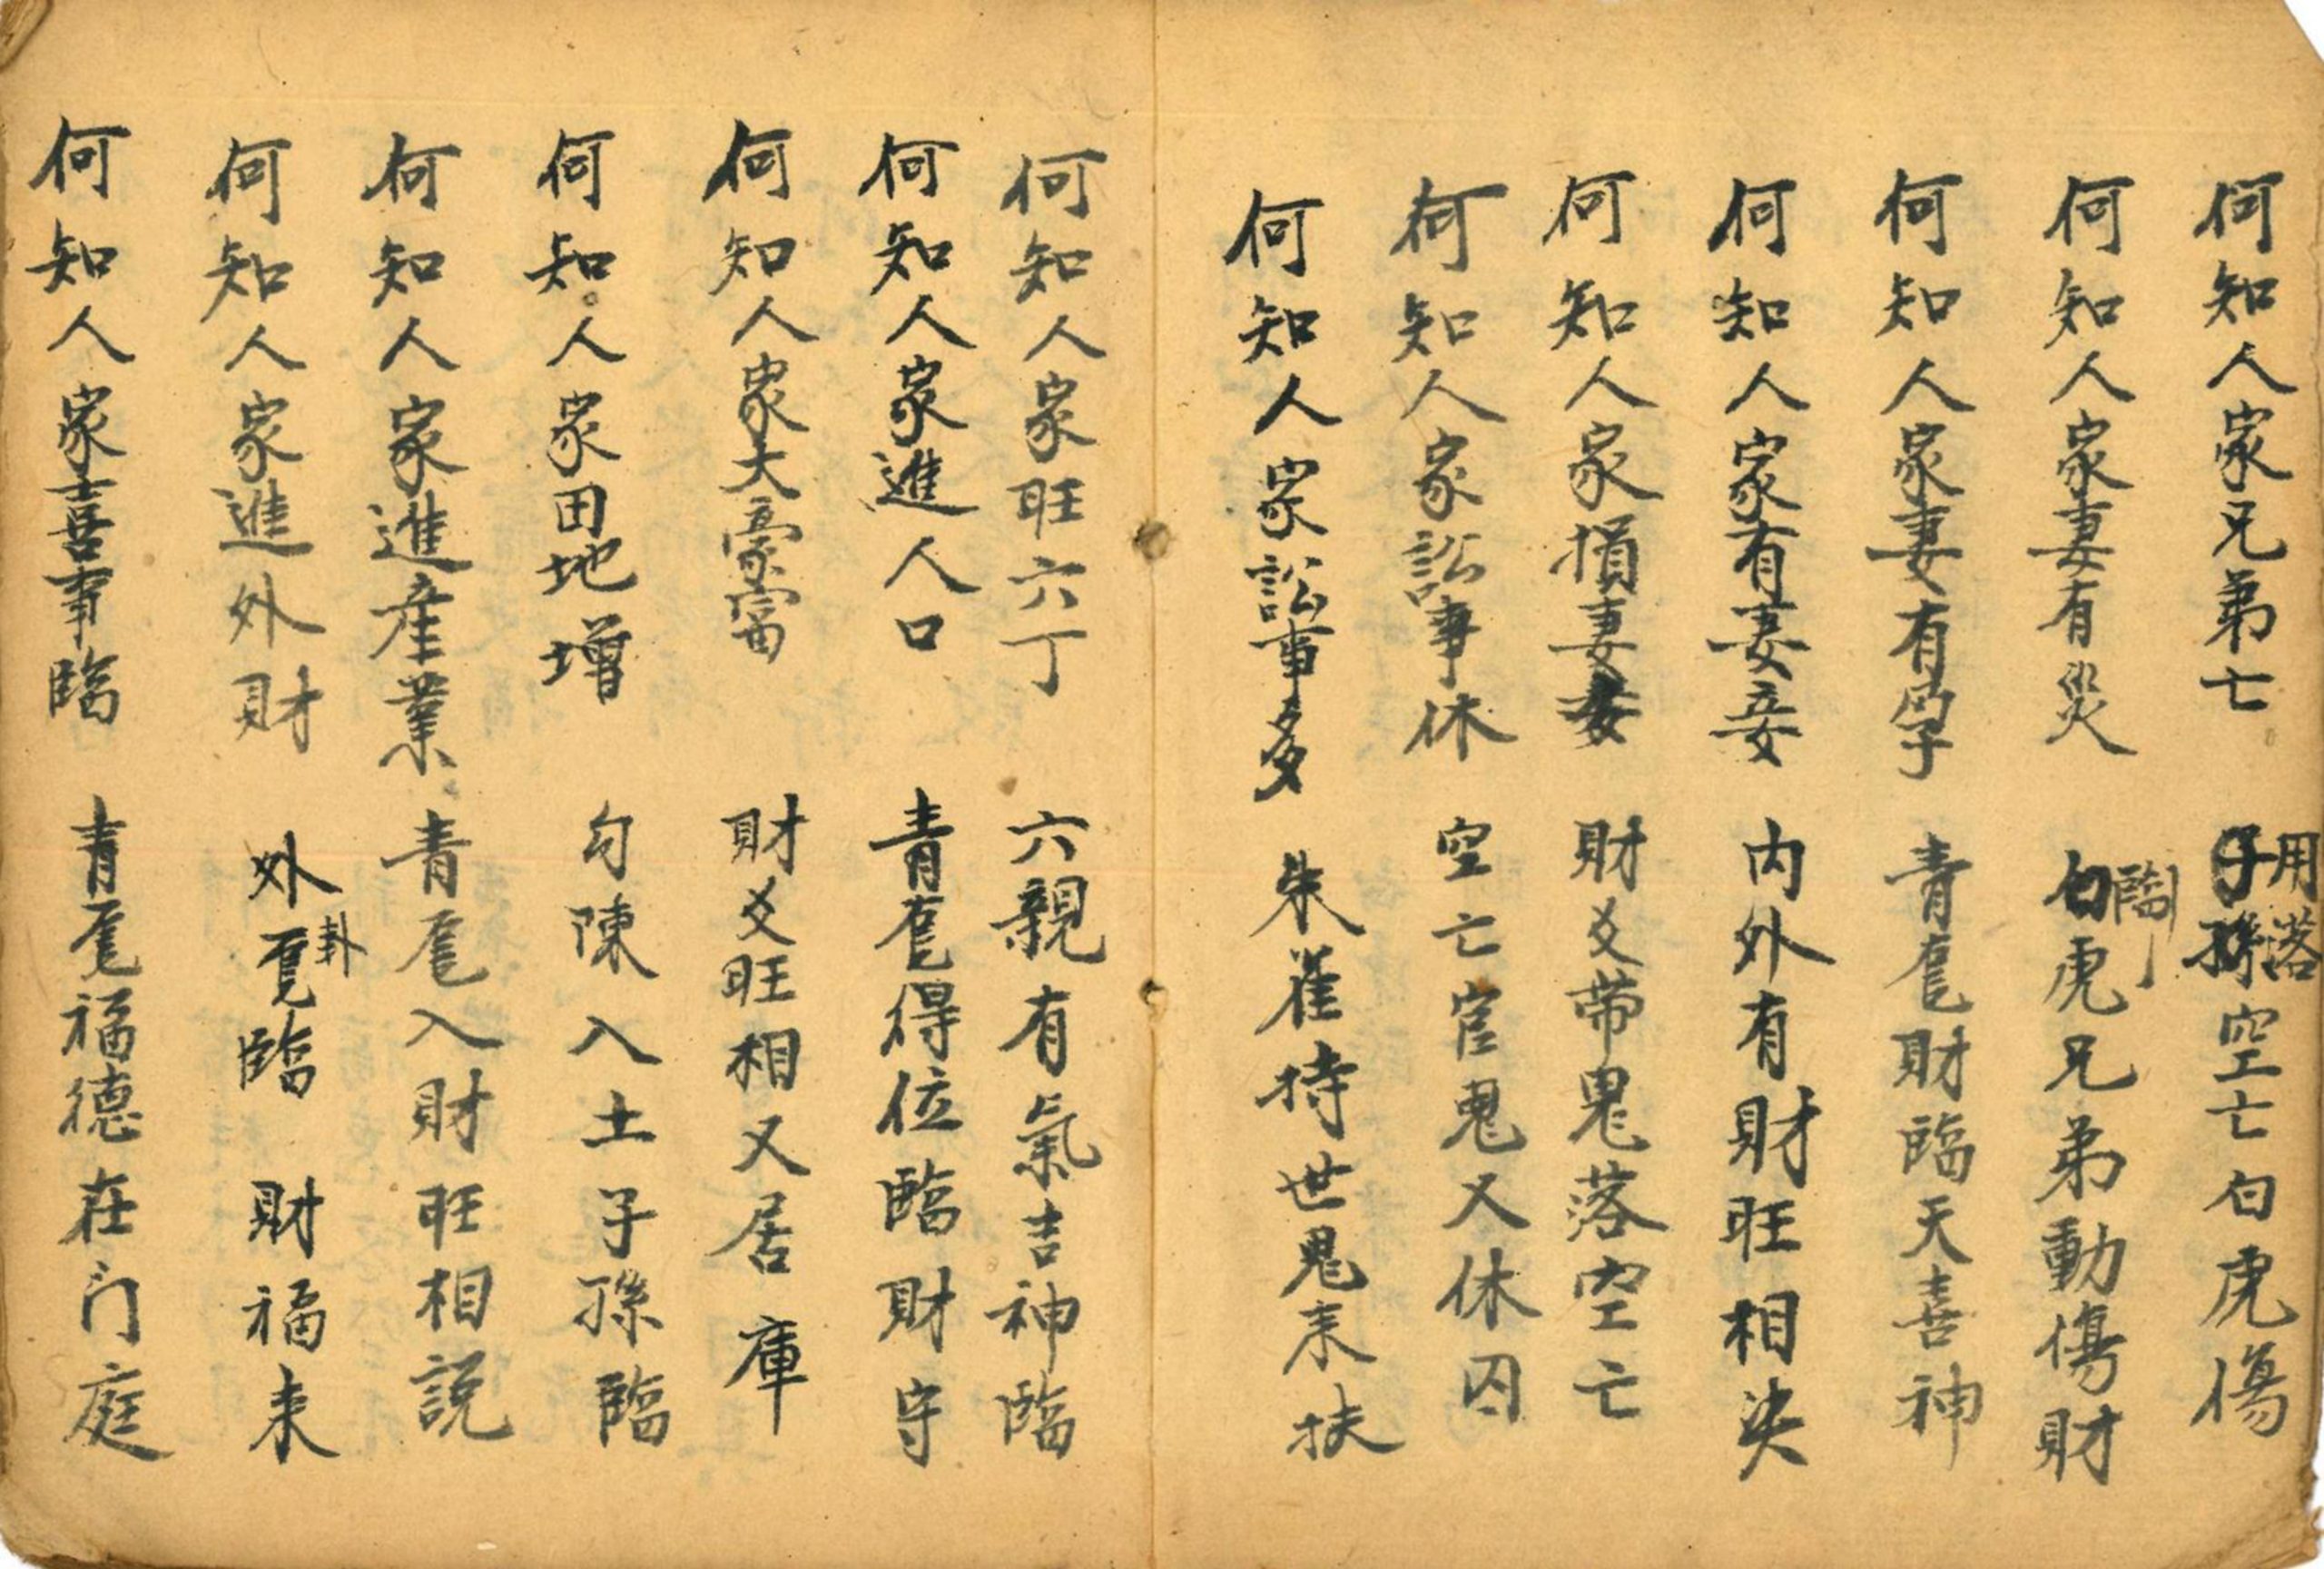 何知人家兄弟亡　用落空亡白虎傷
何知人家妻有災　白虎臨兄弟動傷財
何知人家妻有孕　青竜財臨天喜神
何知人家有妻妾　内外有財旺相決
何知人家損妻　財爻帶鬼落空亡
何知人家訟事休　空亡官鬼又休囚
何知人家訟事多　朱雀持世鬼来扶
何知人家旺六丁　六親有氣吉神臨
何知人家進人口　青竜得位臨財守
何知人家大豪富　財爻旺相又居庫
何知人家田地增　勾陳入土子孫臨
何知人家進産業　青竜入財旺相説
何知人家進外財　外卦竜臨財福来
何知人家喜事臨　青竜福德在门庭